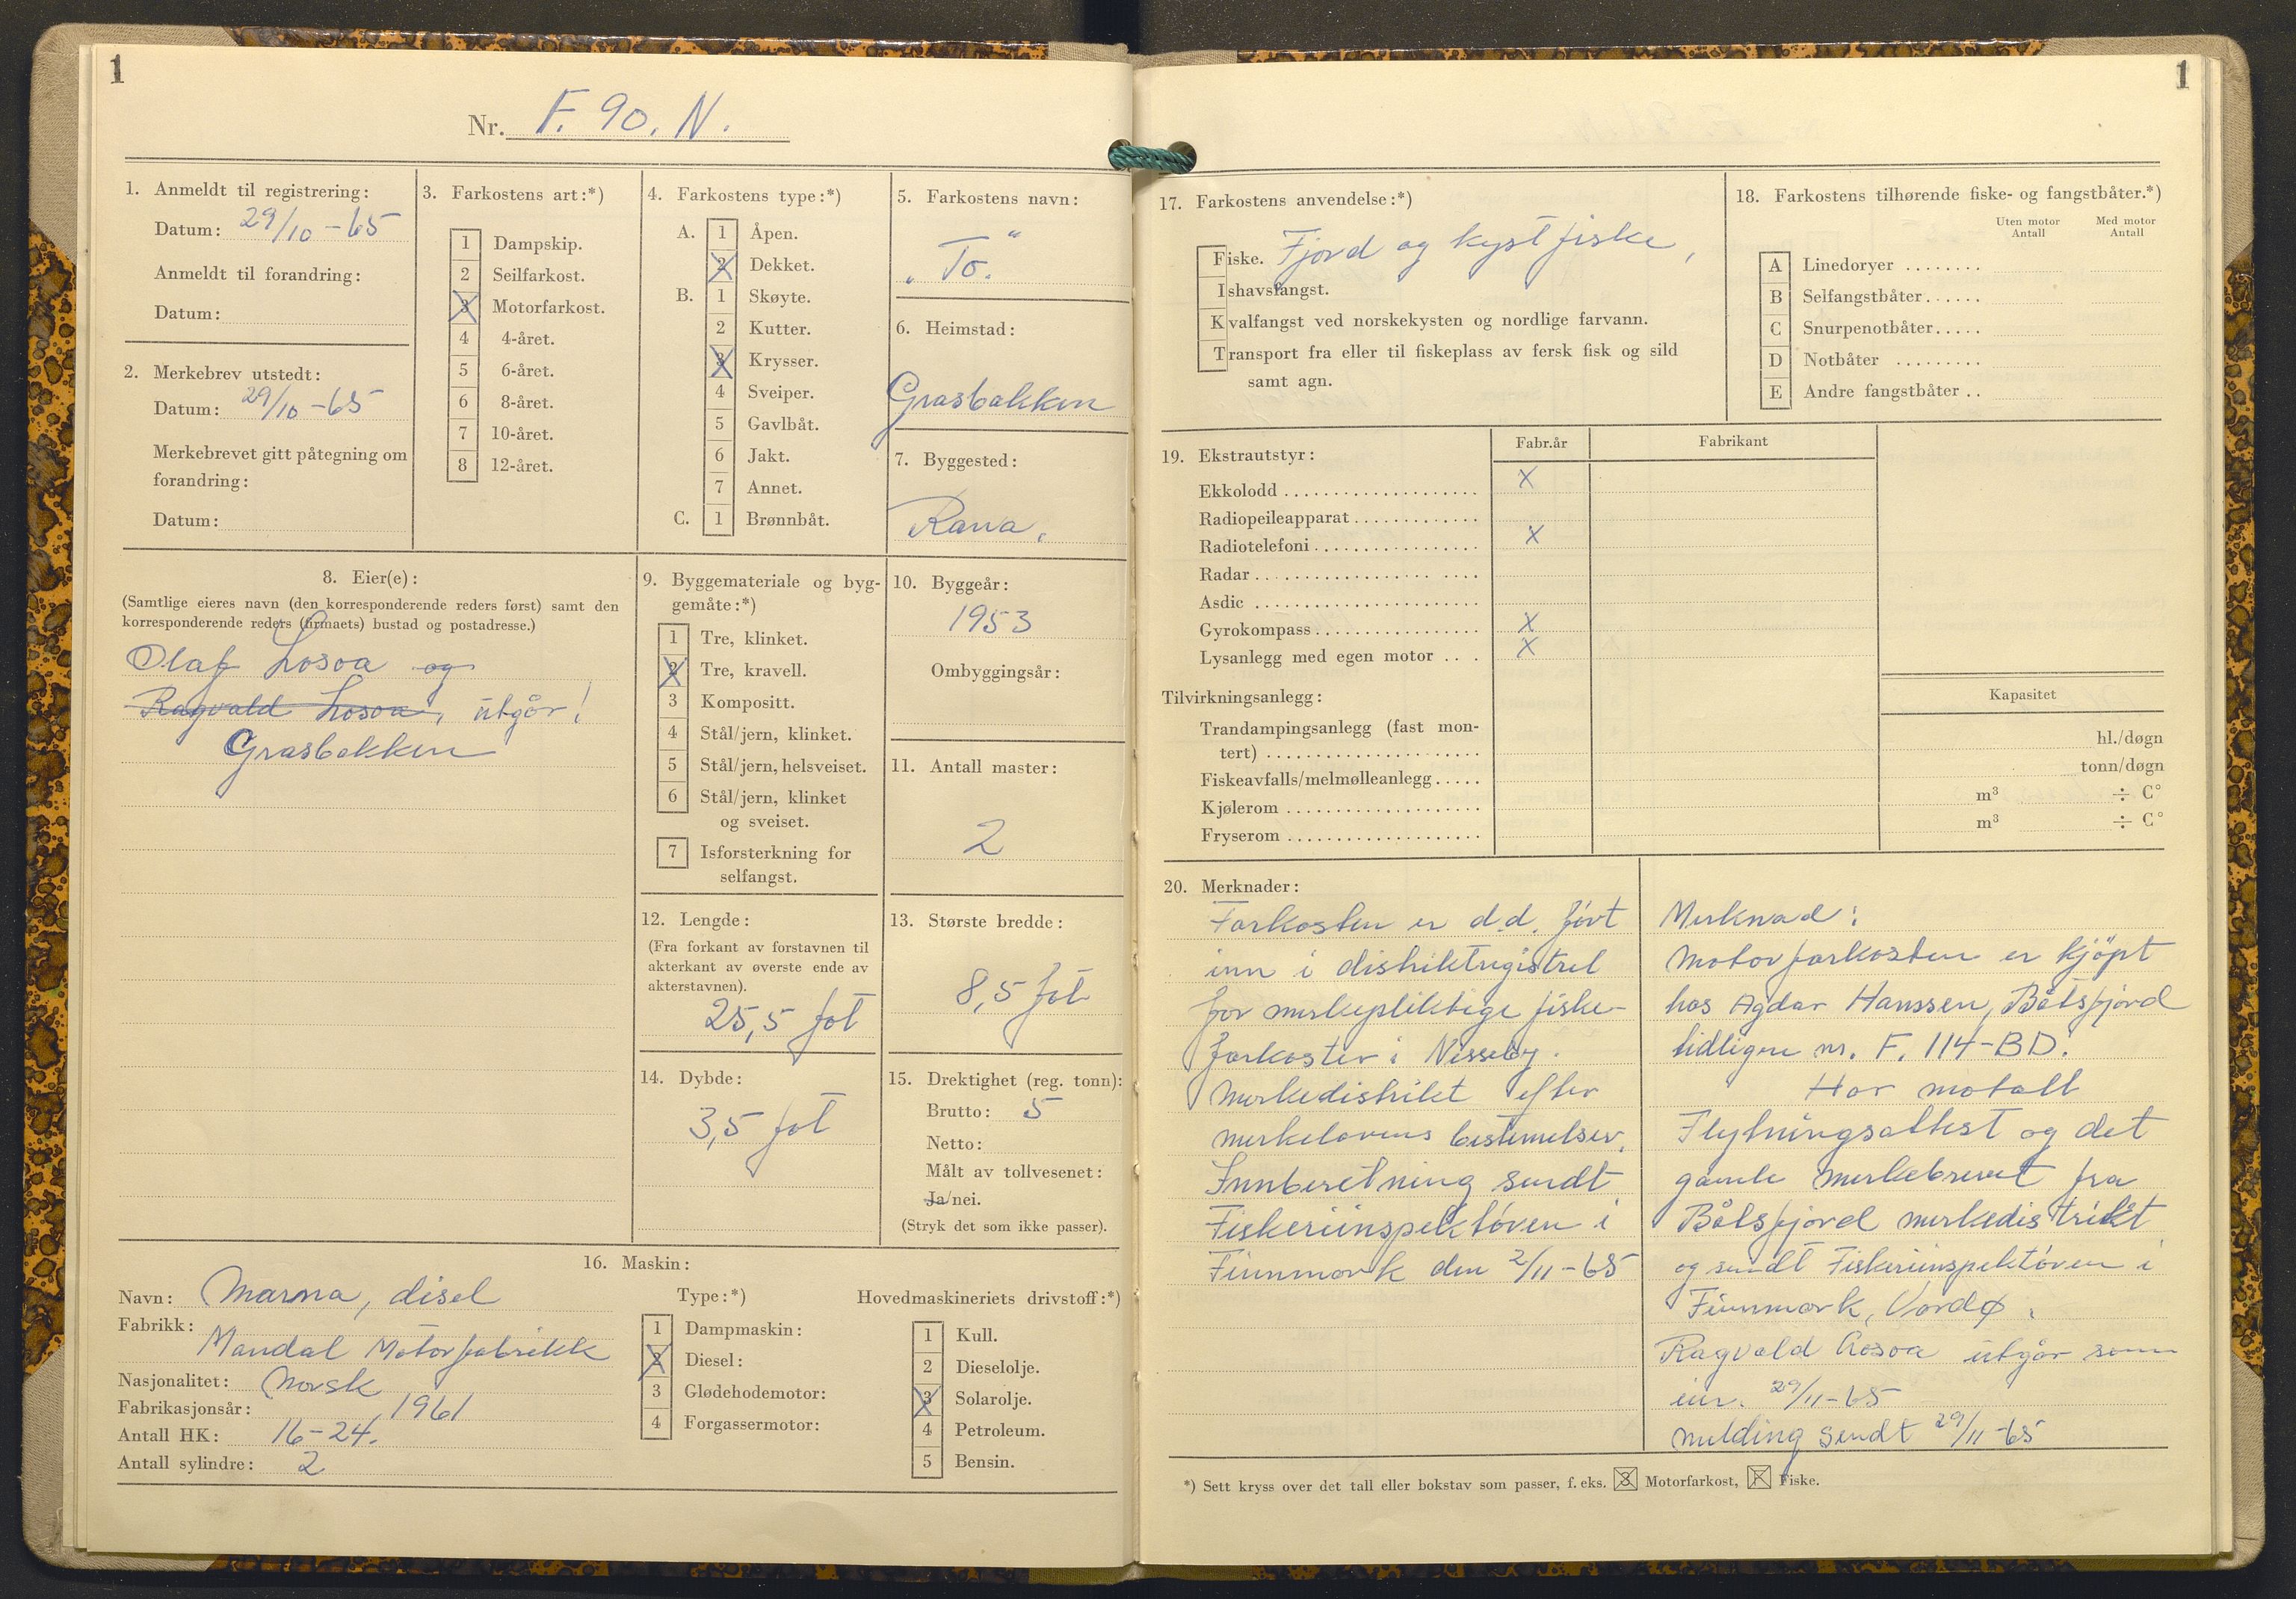 1
Nr. F. 90. N.
1. Anmeldt til registrering:
Datum: 29/10 - 65
Anmeldt til forandring:
Datum:
2. Merkebrev utstedt:
Datum: 29/10 - 65
Merkebrevet gitt påtegning om
forandring:
Datum:
3. Farkostens art:*)
1 Dampskip.
2 Seilfarkost.
3 Motorfarkost.
4 4-året.
5 6-året.
6 8-året.
7 10-året.
8 12-året.
4. Farkostens type:*)
A. 1 Åpen.
2 Dekket.
B. 1 Skøyte.
2 Kutter.
3 Krysser.
4 Sveiper.
5 Gavlbåt.
6 Jakt.
7 Annet.
C. 1 Brønnbåt.
5. Farkostens navn:
„To."
6. Heimstad:
Grasbakken
7. Byggested:
Rana.
8. Eier(e):
(Samtlige eieres navn (den korresponderende reders først) samt den
korresponderende reders (firmaets) bustad og postadresse.)
Olaf Losoa og
Ragvald Losoa, utgår!
Grasbakken
9. Byggemateriale og byg-
gemåte:*)
1 Tre, klinket.
2 Tre, kravell.
3 Kompositt.
4 Stål/jern, klinket.
5 Stål/jern, helsveiset.
6 Stål/jern, klinket
og sveiset.
7 Isforsterkning for
selfangst.
10. Byggeår:
1953
Ombyggingsår:
11. Antall master:
2
12. Lengde:
(Fra forkant av forstavnen til
akterkant av øverste ende av
akterstavnen).
25,5 fot
13. Største bredde:
8,5 fot
14. Dybde:
3,5 fot
15. Drektighet (reg. tonn):
Brutto: 5
Netto:
Målt av tollvesenet:
Ja/nei.
(Stryk det som ikke passer).
16. Maskin:
Navn: Marna, disel
Fabrikk:
Mandal Motorfabrikk
Nasjonalitet: Norsk
Fabrikasjonsår: 1961
Antall HK: 16-24.
Antall sylindre: 2
Type:*)
1 Dampmaskin:
2 Diesel:
3 Glødehodemotor:
4 Forgassermotor:
Hovedmaskineriets drivstoff:*)
1 Kull.
2 Dieselolje.
3 Solarolje.
4 Petroleum.
5 Bensin.
1
17. Farkostens anvendelse:*)
Fiske. Fjord og kystfiske,
Ishavsfangst.
Kvalfangst ved norskekysten og nordlige farvann.
Transport fra eller til fiskeplass av fersk fisk og sild
samt agn.
18. Farkostens tilhørende fiske- og fangstbåter.*)
Uten motor Med motor
Antall Antall
A Linedoryer ........
B Selfangstbåter......
C Snurpenotbåter.....
D Notbåter .........
E Andre fangstbåter ..
19. Ekstrautstyr:
Fabr.år Fabrikant
Ekkolodd .................... X
Radiopeileapparat .............
Radiotelefoni ................. X
Radar ......................
Asdic .......................
Gyrokompass ................. X
Lysanlegg med egen motor ... X
Tilvirkningsanlegg:
Kapasitet
Trandampingsanlegg (fast mon-
tert) ...................... hl./døgn
Fiskeavfalls/melmølleanlegg..... tonn/døgn
Kjølerom .................... m³ ÷ C°
Fryserom .................... m³ ÷ C°
20. Merknader:
Farkosten er d.d. ført
inn i distriktregistret
for merkepliktige fiske-
farkoster i Nesseby.
Merkedistrikt efter
merkelovens bestemelser.
Innberetning sendt
Fiskeriinspektøren i
Finnmark den 2/11 - 65
Merknad:
Motorfarkosten er kjöpt
hos Agdar Hanssen, Båtsfjord
tidligere nr. F. 114-BD.
Har motatt
Flytningsattest og det
gamle merkebrevet fra
Båtsfjord merkedistrikt
og sendt Fiskeriinspektøren i
Finnmark, Vardø.
Ragvald Losoa utgår som
eier. 29/11 - 65
melding sendt 29/11 - 65
*) Sett kryss over det tall eller bokstav som passer, f. eks. 3 Motorfarkost, F Fiske.